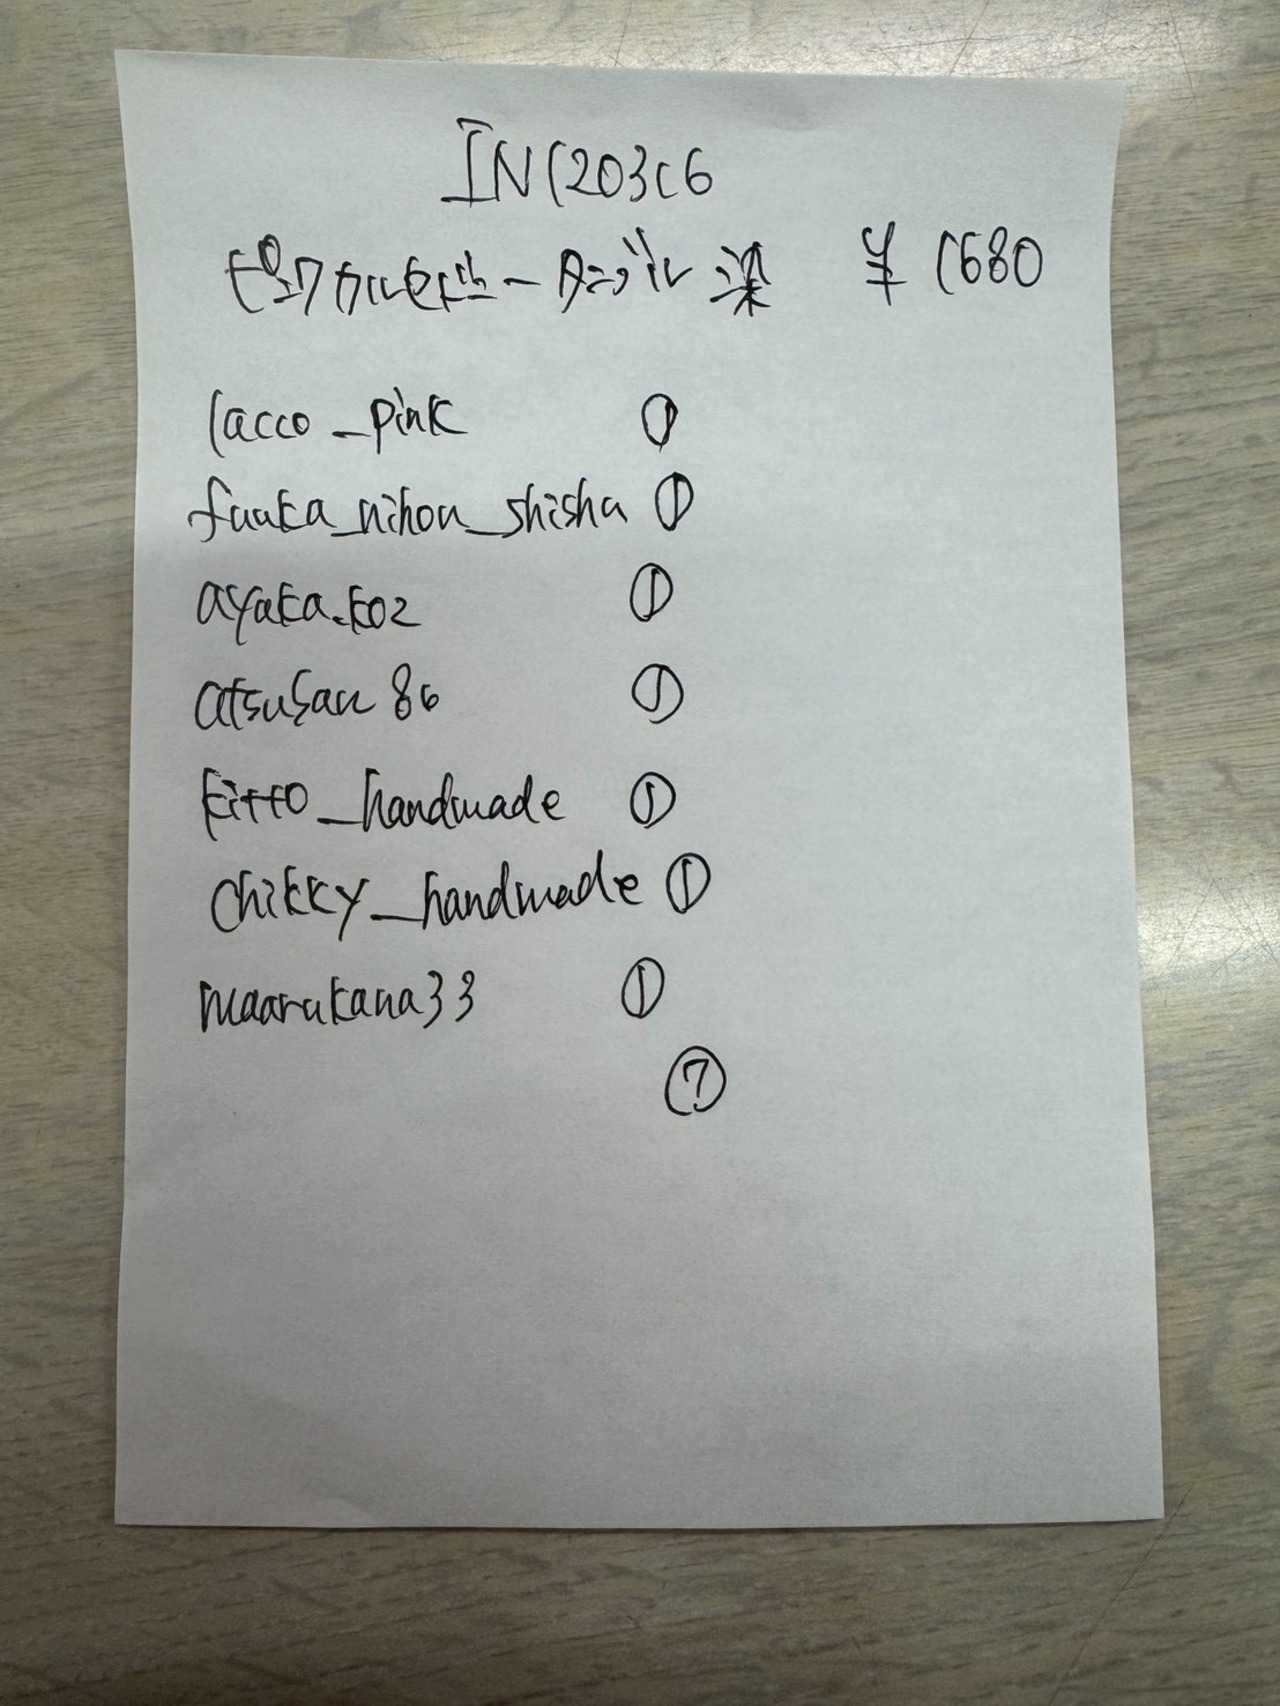 IN120316
ピンクカルセドニータンブル 染 ¥1680
lacco_pink ①
fuuka_nihon_shisha ①
ayaka.k02 ①
atsusan86 ①
kitto_handmade ①
chikky_handmade ①
maarukana33 ①
⑦